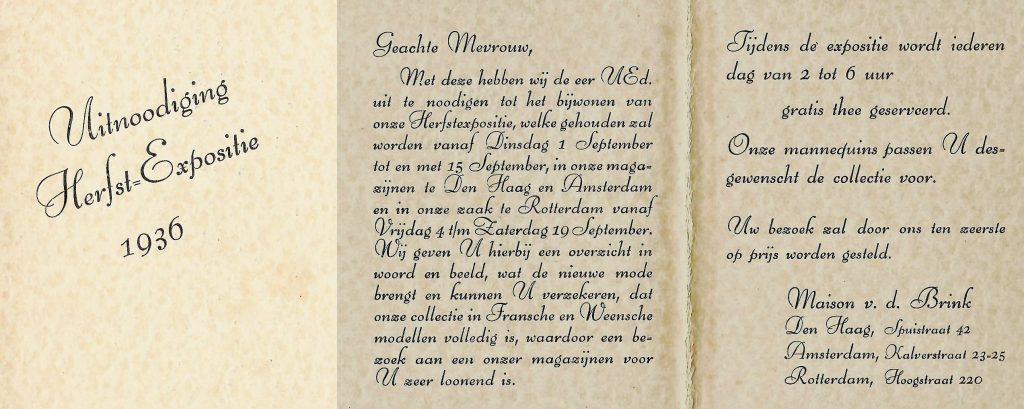 Uitnoodiging
Herfst=Expositie
1936
Geachte Mevrouw,
Met deze hebben wij de eer UEd.
uit te noodigen tot het bijwonen van
onze Herfstexpositie, welke gehouden zal
worden vanaf Dinsdag 1 September
tot en met 15 September, in onze maga-
zijnen te Den Haag en Amsterdam
en in onze zaak te Rotterdam vanaf
Vrijdag 4 t/m Zaterdag 19 September.
Wij geven U hierbij een overzicht in
woord en beeld, wat de nieuwe mode
brengt en kunnen U verzekeren, dat
onze collectie in Fransche en Weensche
modellen volledig is, waardoor een be-
zoek aan een onzer magazijnen voor
U zeer loonend is.
Tijdens de expositie wordt iederen
dag van 2 tot 6 uur
gratis thee geserveerd.
Onze mannequins passen U des-
gewenscht de collectie voor.
Uw bezoek zal door ons ten zeerste
op prijs worden gesteld.
Maison v. d. Brink
Den Haag, Spuistraat 42
Amsterdam, Kalverstraat 23-25
Rotterdam, Hoogstraat 220